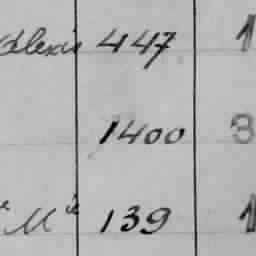 Alexis 447 1
1400 3
M 139 1